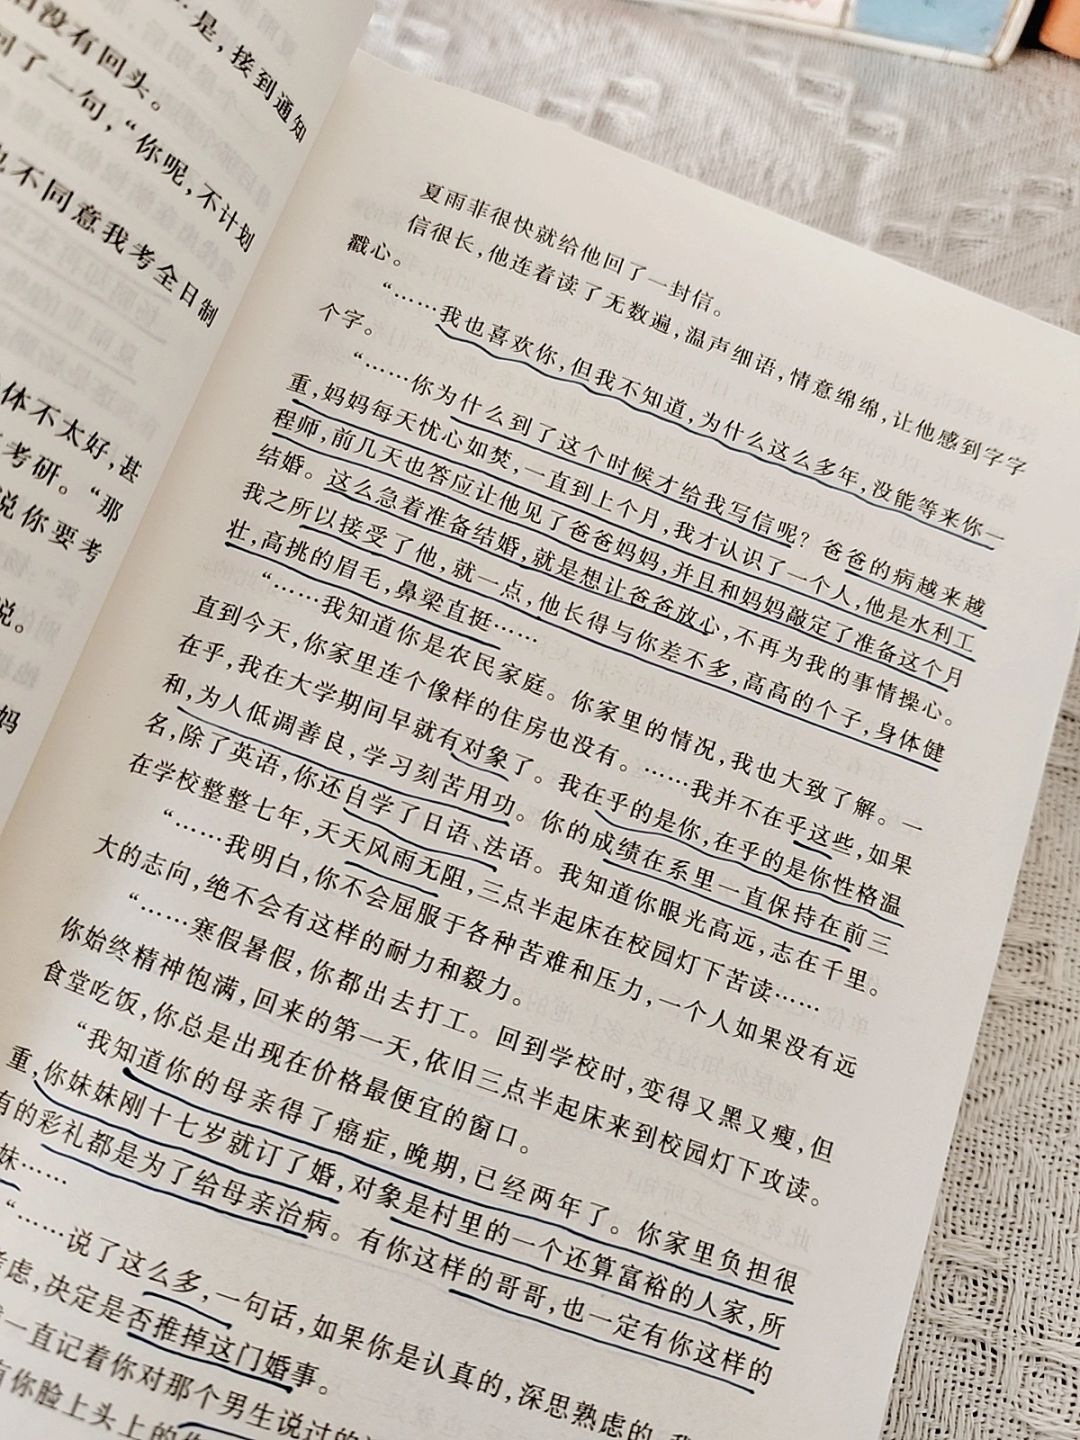 是，接到通知
没有回头。
了一句，“你呢，不计划
不同意我考全日制
体不太好，甚
考研。“那
说你要考
说。
妈
夏雨菲很快就给他回了一封信。
信很长，他连着读了无数遍，温声细语，情意绵绵，让他感到字字
戳心。
“……我也喜欢你，但我不知道，为什么这么多年，没能等来你一
个字。
“……你为什么到了这个时候才给我写信呢？爸爸的病越来越
重，妈妈每天忧心如焚，一直到上个月，我才认识了一个人，他是水利工
程师，前几天也答应让他见了爸爸妈妈，并且和妈妈敲定了准备这个月
结婚。这么急着准备结婚，就是想让爸爸放心，不再为我的事情操心。
我之所以接受了他，就一点，他长得与你差不多，高高的个子，身体健
壮，高挑的眉毛，鼻梁直挺……
“……我知道你是农民家庭。你家里的情况，我也大致了解。一
直到今天，你家里连个像样的住房也没有。……我并不在乎这些，如果
在乎，我在大学期间早就有对象了。我在乎的是你，在乎的是你性格温
和，为人低调善良，学习刻苦用功。你的成绩在系里一直保持在前三
名，除了英语，你还自学了日语、法语。我知道你眼光高远，志在千里。
在学校整整七年，天天风雨无阻，三点半起床在校园灯下苦读……
“……我明白，你不会屈服于各种苦难和压力，一个人如果没有远
大的志向，绝不会有这样的耐力和毅力。
“……寒假暑假，你都出去打工。回到学校时，变得又黑又瘦，但
你始终精神饱满，回来的第一天，依旧三点半起床来到校园灯下攻读。
食堂吃饭，你总是出现在价格最便宜的窗口。
“我知道你的母亲得了癌症，晚期，已经两年了。你家里负担很
重，你妹妹刚十七岁就订了婚，对象是村里的一个还算富裕的人家，所
有的彩礼都是为了给母亲治病。有你这样的哥哥，也一定有你这样的
妹……
“……说了这么多，一句话，如果你是认真的，深思熟虑的，我
虑，决定是否推掉这门婚事。
一直记着你对那个男生说过的
有你脸上头上的